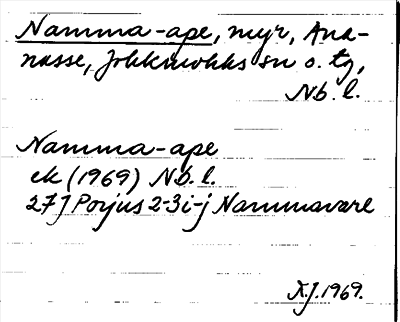 Namma-ape, myr, Ana-
nasse, Jokkmokks sn o. tg,
Nb. l.
Namma-ape
ek (1969) Nb. l.
27J Porjus 2-3i-j Nammavare
X.J. 1969.